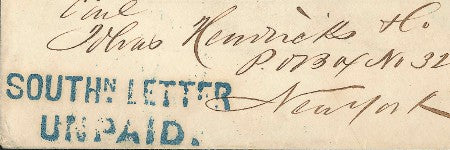 Care
Hendricks & Co
P.O Box No 32
New York
SOUTHN LETTER
UNPAID.